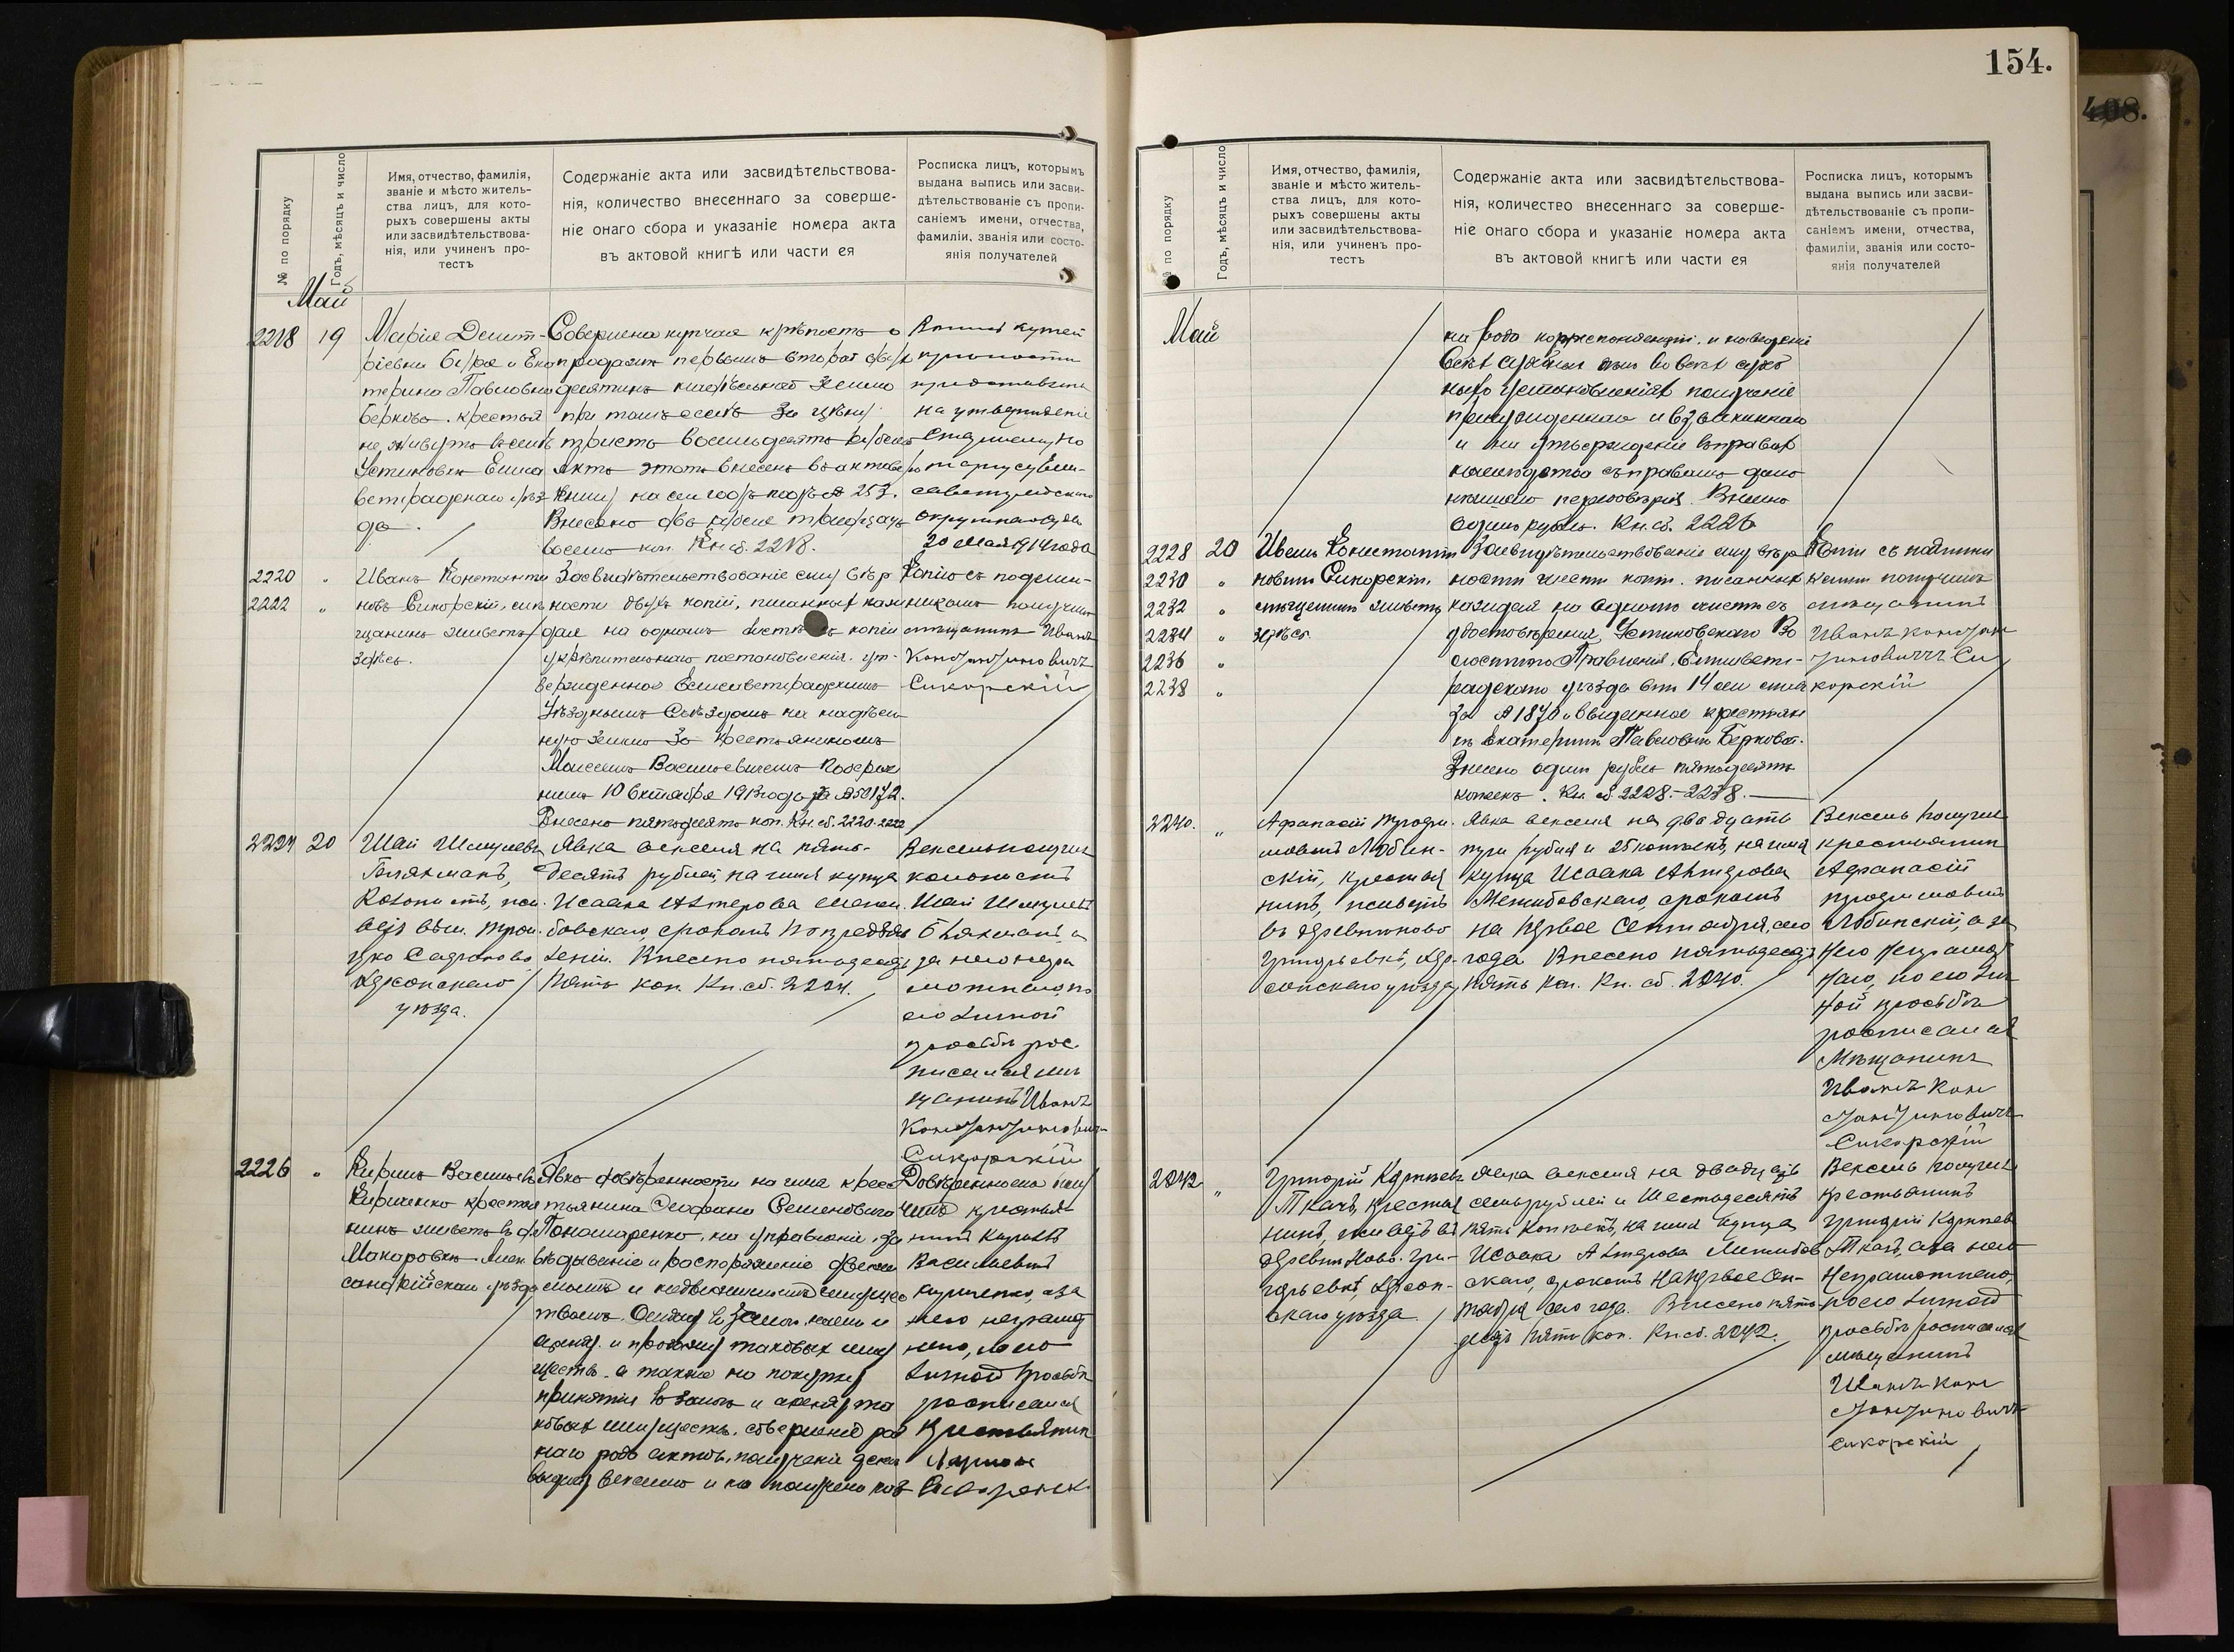 154.
408.
№ по порядку
Годъ, мѣсяцъ и число
Имя, отчество, фамилія,
званіе и мѣсто житель-
ства лицъ, для кото-
рыхъ совершены акты
или засвидѣтельствова-
нія, или учиненъ про-
тестъ
Содержаніе акта или засвидѣтельствова-
нія, количество внесеннаго за соверше-
ніе онаго сбора и указаніе номера акта
въ актовой книгѣ или части ея
Росписка лицъ, которымъ
выдана выпись или засви-
дѣтельствованіе съ пропи-
саніемъ имени, отчества,
фамиліи, званія или состо-
янія получателей
Май
2218 19
Марія Дмит-
ріевна
терина Павловна
Беркова, крестья
не, живутъ въ селѣ
Устиновкѣ Елиса
ветградскаго уѣз
да.
Совершена купчая крѣпость о
продажѣ первымъ второй двухъ
десятинъ надѣльной земли
при томъ селѣ за цѣну
триста восемьдесятъ рублей
Актъ этотъ внесенъ въ актовую
книгу на сей годъ подъ № 253.
Внесено два рубля тридцать
восемь коп. Кн. сб. 2218.
купчей
крѣпости
представить
на утвержденіе
Старшему Но
таріусу Ели-
саветградскаго
Окружнаго Суда
20 Мая 1914 года
2220 „
2222 „
Иванъ Константи
новъ Сикорскій, мѣ
щанинъ живетъ
здѣсь.
Засвидѣтельствованіе ему вѣр
ности двухъ копій, писанныхъ каж
дая на одномъ листѣ съ копіи
укрѣпительнаго постановленія, ут-
вержденное Елисаветградскимъ
Уѣзднымъ Съѣздомъ на надѣль
ную землю за крестьяниномъ
Моисеемъ Васильевичемъ
10 Октября 1913 года за № 50172.
Внесено пятьдесятъ коп. Кн. сб. 2220-2222
Копію съ подлин-
никомъ получилъ
мѣщанинъ Иванъ
Константиновичъ
Сикорскій
2224 20
Шай Шмулевъ
колонистъ, жи
ветъ въ
Херсонскаго
уѣзда.
Явка векселя на пять-
десятъ рублей, на имя купца
Исаака Алтерова Межи
бовскаго, срокомъ по предъяв
ленію. Внесено пятьдесятъ
пять коп. Кн. сб. 2224.
Вексель получилъ
колонистъ
Шай Шмулевъ
а
за него негра
мотнаго, по
его личной
просьбѣ рос
писался мѣ
щанинъ Иванъ
Константиновичъ
Сикорскій
2226 „
Кирилъ Васильевъ
Кириченко крестья
нинъ живетъ въ д.
Макаровкѣ Алек
сандрійскаго уѣзда
Явка довѣренности на имя крес
тьянина Семеновича
Пономаренко, на управленіе, за
вѣдываніе и распоряженіе движи
мымъ и недвижимымъ имущес
твомъ. Отдачу въ залогъ, наемъ и
аренду и продажу таковыхъ иму
ществъ, а также на покупку
принятія въ залогъ и аренду та
ковыхъ имуществъ, совершеніе раз
наго рода актовъ, полученіе денегъ
выдачу векселей и на полученіе
Довѣренность полу
чилъ крестья-
нинъ Кирилъ
Васильевъ
Кириченко, а за
него неграмот
наго, по его
личной просьбѣ
росписался
Крестьянинъ
№ по порядку
Годъ, мѣсяцъ и число
Имя, отчество, фамилія,
званіе и мѣсто житель-
ства лицъ, для кото-
рыхъ совершены акты
или засвидѣтельствова-
нія, или учиненъ про-
тестъ
Содержаніе акта или засвидѣтельствова-
нія, количество внесеннаго за соверше-
ніе онаго сбора и указаніе номера акта
въ актовой книгѣ или части ея
Росписка лицъ, которымъ
выдана выпись или засви-
дѣтельствованіе съ пропи-
саніемъ имени, отчества,
фамиліи, званія или состо-
янія получателей
Май
рода корреспонденціи, и на веденіе
всѣхъ судебныхъ дѣлъ во всѣхъ судеб
ныхъ установленіяхъ полученіе
присужденнаго и взысканнаго
и на утвержденіе въ правахъ
наслѣдства съ правомъ даль
нѣйшаго передовѣрія. Внесено
одинъ рубль. Кн. сб. 2226
2228 20
2230 „
2232 „
2234 „
2236 „
2238 „
Иванъ Константи
новичъ Сикорскій,
мѣщанинъ живетъ
здѣсь.
Засвидѣтельствованіе ему вѣр
ности шести копій, писанныхъ
каждая на одномъ листѣ съ
удостовѣренія, Устиновскаго Во
лостного Правленія, Елисавет-
градскаго уѣзда отъ 14 сего мая
за № 1870, выданное крестьян
кѣ Екатеринѣ Павловнѣ Берковой.
Внесено одинъ рубль пятьдесятъ
копѣекъ. Кн. сб. 2228-2238.
Копіи съ подлин
получилъ
мѣщанинъ
Иванъ Констан
тиновичъ Си
корскій
2240. „
Афанасій Трофи-
мовичъ Любин-
скій, крестья
нинъ, живетъ
въ деревнѣ Ново
Григорьевкѣ, Хер-
сонскаго уѣзда,
Явка векселя на двадцать
три рубля и 25 копѣекъ, на имя
купца Исаака Алтерова
Межибовскаго, срокомъ
на первое Сентября, сего
года Внесено пятьдесятъ
пять коп. Кн. сб. 2240.
Вексель получилъ
крестьянинъ
Афанасій
Трофимовичъ
Любинскій, а за
него неграмот
наго, по его лич
ной просьбѣ
росписался
Мѣщанинъ
Иванъ Кон
стантиновичъ
Сикорскій
2242 „
Григорій Карповъ
Ткачъ, крестья
нинъ, живетъ въ
деревнѣ Ново-Гри-
горьевкѣ, Херсон-
скаго уѣзда.
Явка векселя на двадцать
семь рублей и шестьдесятъ
пять копѣекъ, на имя купца
Исаака Алтерова Межибов
скаго, срокомъ на первое Сен-
тября сего года. Внесено пять
десятъ пять коп. Кн. сб. 2242.
Вексель получилъ
крестьянинъ
Григорій Карповъ
Ткачъ, а за него
неграмотнаго,
по его личной
просьбѣ росписался
мѣщанинъ
Иванъ Кон
стантиновичъ
Сикорскій